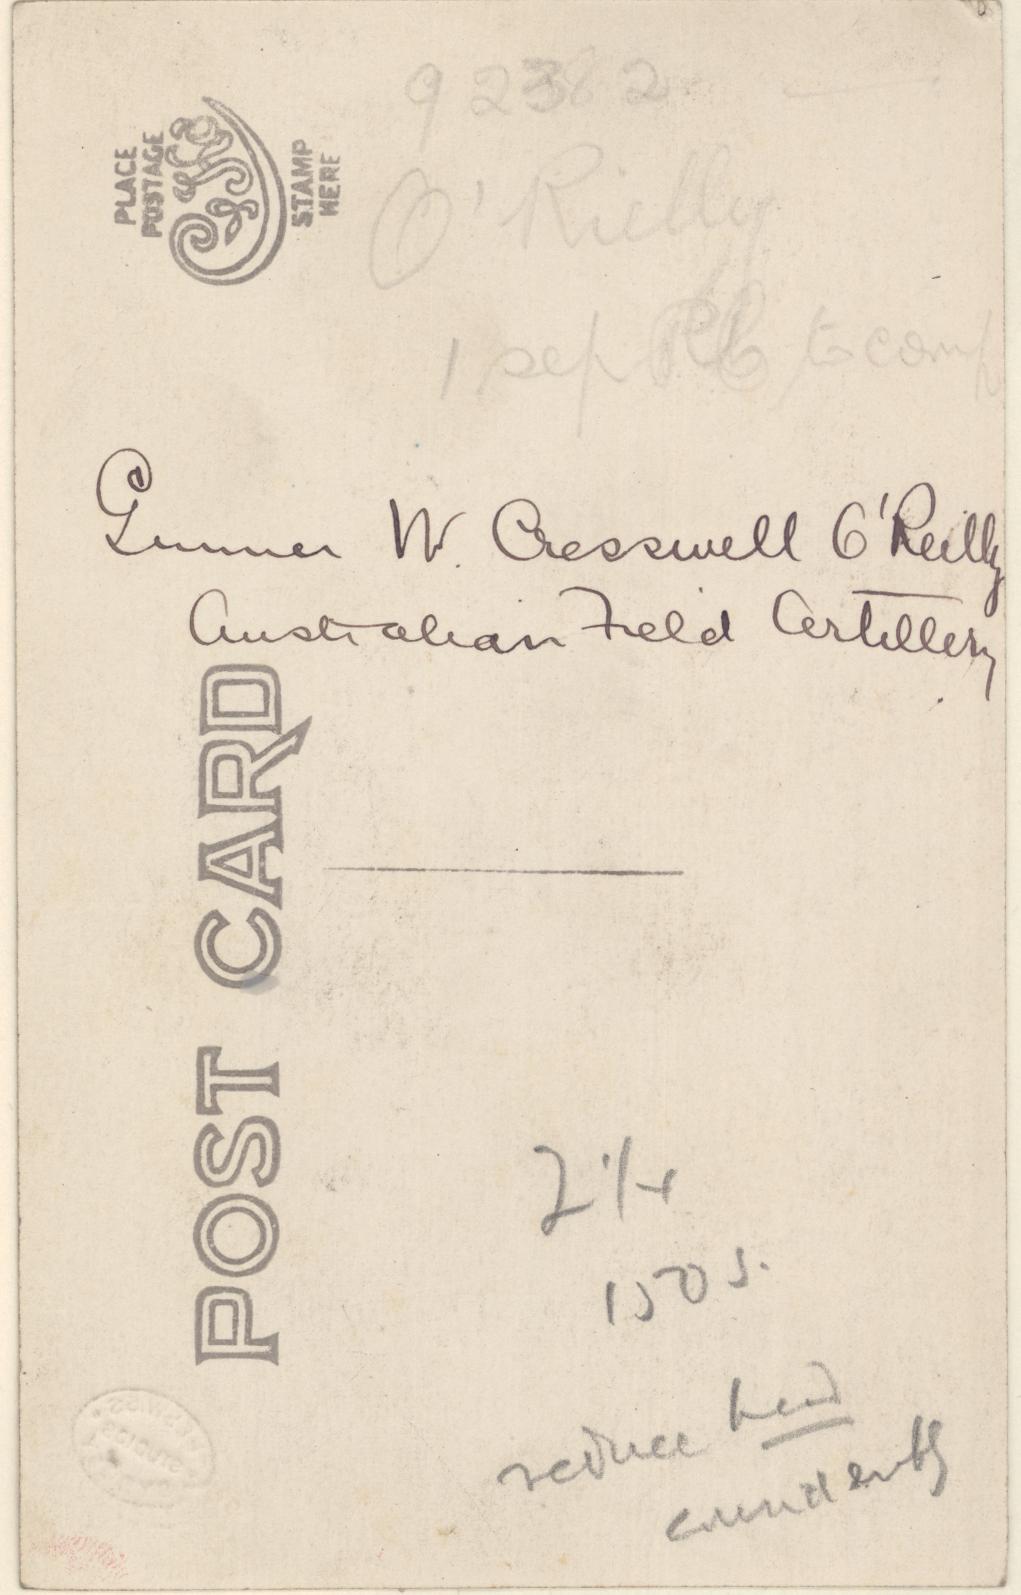 PLACE
POSTAGE
STAMP
HERE
O'Rielly
1 sep PC to comp
Gunner W. Cresswell O'Reilly
Australian Field Artillery
POST CARD
2 1/4
150 s.
reduce head